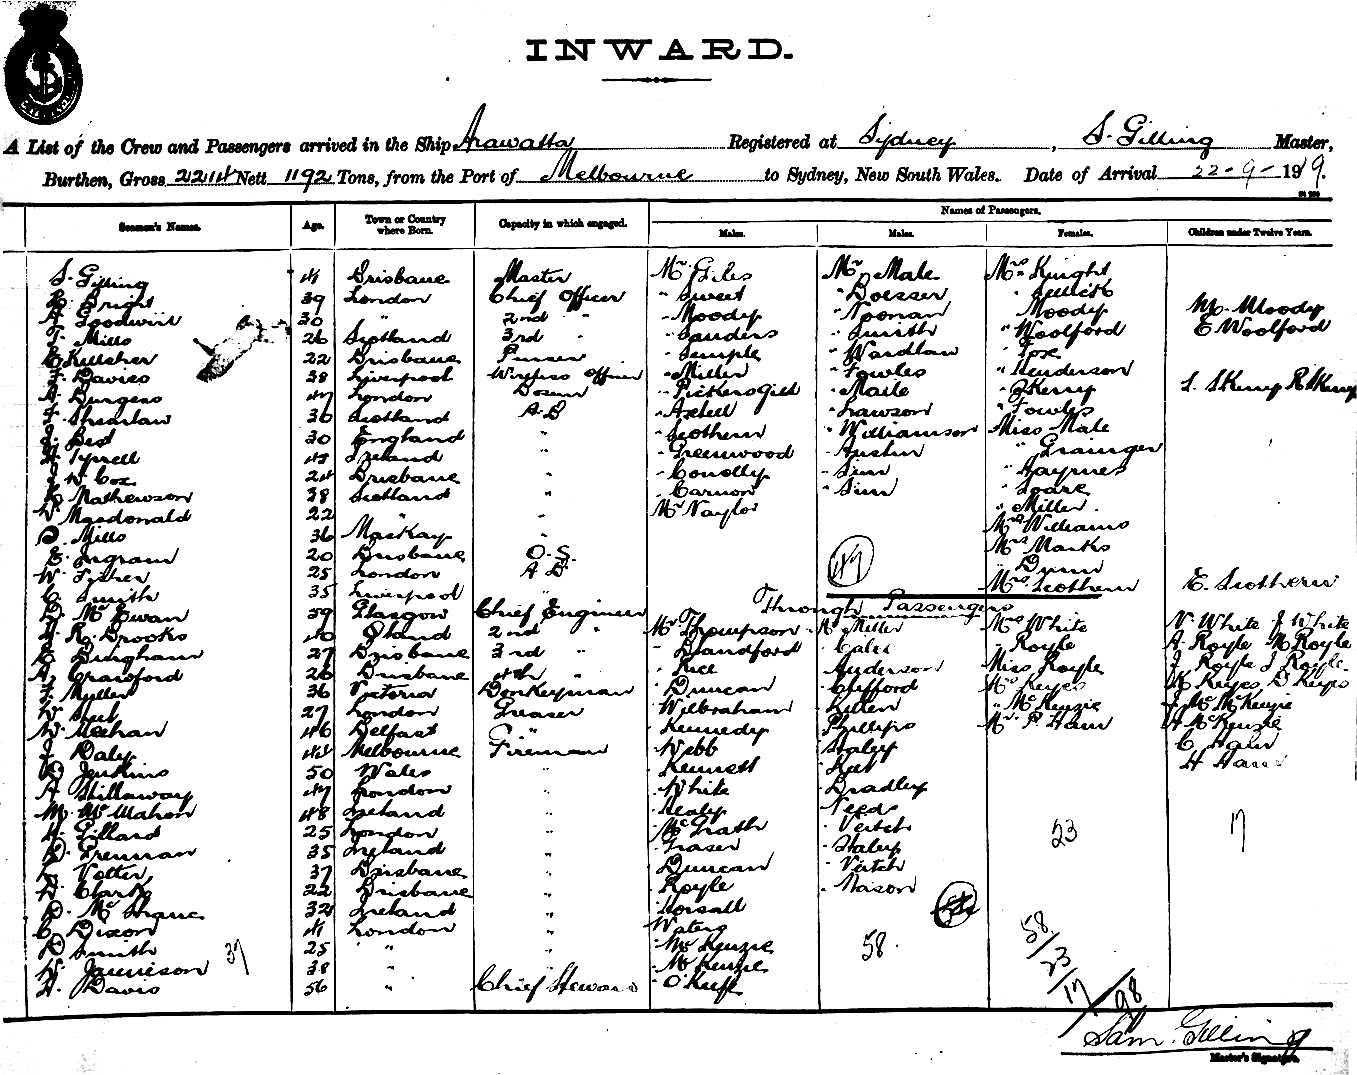 INWARD.
A List of the Crew and Passengers arrived in the Ship Arawatta Registered at Sydney, S. Gilling Master,
Burthen, Gross 2214 Nett 1192 Tons, from the Port of Melbourne to Sydney, New South Wales. Date of Arrival 22-9-1919.
Seamen's Names. Age. Town or Country where Born. Capacity in which engaged. Names of Passengers.
Males. Males. Females. Children under Twelve Years.
S. Gilling 41 Brisbane Master Mr Giles Mr Male Mrs Knight
R. Bright 39 London Chief Officer " Sweet " Boesser "
A. Goodwin 30 " 2nd " " Moody " Noonan " Moody M. Moody
J. Mills 26 Scotland 3rd " " Sanders " Smith " Woolford E Woolford
E. Kelleher 22 Brisbane Purser " Semple " Wardlaw " Fox
Davies 38 Liverpool Wireless Officer " Miller " Fowles " Henderson
Burgess 47 London Bosun " Pickersgill " Maile " Skerry S. Skerry R Skerry
Shearlaw 36 Scotland A.B " Axtell " Lawson " Fowles
Best 30 England " " Scothern " Williamson Miss Male
Tyrrell 47 Ireland " " Greenwood " Austin " Grainger
W Cox 24 Brisbane " " Conolly " Sim " Haynes
Mathewson 38 Scotland " " Carnon " Sim " Soare
Macdonald 22 " " Mr Naylor " Miller
D. Mills 36 Mackay " Mrs Williams
E. Ingram 20 Brisbane O.S. Mrs Marks
W. Fisher 25 London A B " Dunn
C. Smith 35 Liverpool " Mrs Scothern E. Scothern
47
Through Passengers
Mc Ewan 59 Glasgow Chief Engineer Mrs White V. White J White
H. R. Brooks 40 Q'land 2nd " Mr Thompson Mr Miller " Royle A. Royle M Royle
Bingham 27 Brisbane 3rd " " Blandford " Miss Royle J Royle J Royle
A. Crawford 26 Brisbane 4th " " Rice Anderson Mrs Keyes K Keyes D Keyes
Muller 36 Victoria Donkeyman " Duncan " Clifford " McKenzie J McKenzie
27 London Greaser " Wilbraham " Killen Mrs P. Ham H McKenzie
W. Meehan 46 Belfast " " Kennedy Phillips C Ham
J. Daly 44 Melbourne Fireman " Webb " Staley H Ham
Jenkins 50 Wales " " Kennett
A. Stillaway 47 London " " White " Bradley
M. McMahon 48 Ireland " " Healy " Needs
H. Gillard 25 London " " McGrath " Veitch 23 17
Brennan 35 Ireland " " Fraser " Staley
Votter 37 Brisbane " " Duncan " Veitch
Clark 22 Brisbane " " Royle " Nason
D. Mc Shane 32 Ireland " " Horsall
C. Dixon 41 London " Waters
D Smith 25 " " " McKenzie 58.
37
W. Jamieson 38 " " " McKenzie
Davis 56 " Chief Steward " O'Keefe
58/23/17/98
Sam. Gilling
Master's Signature.